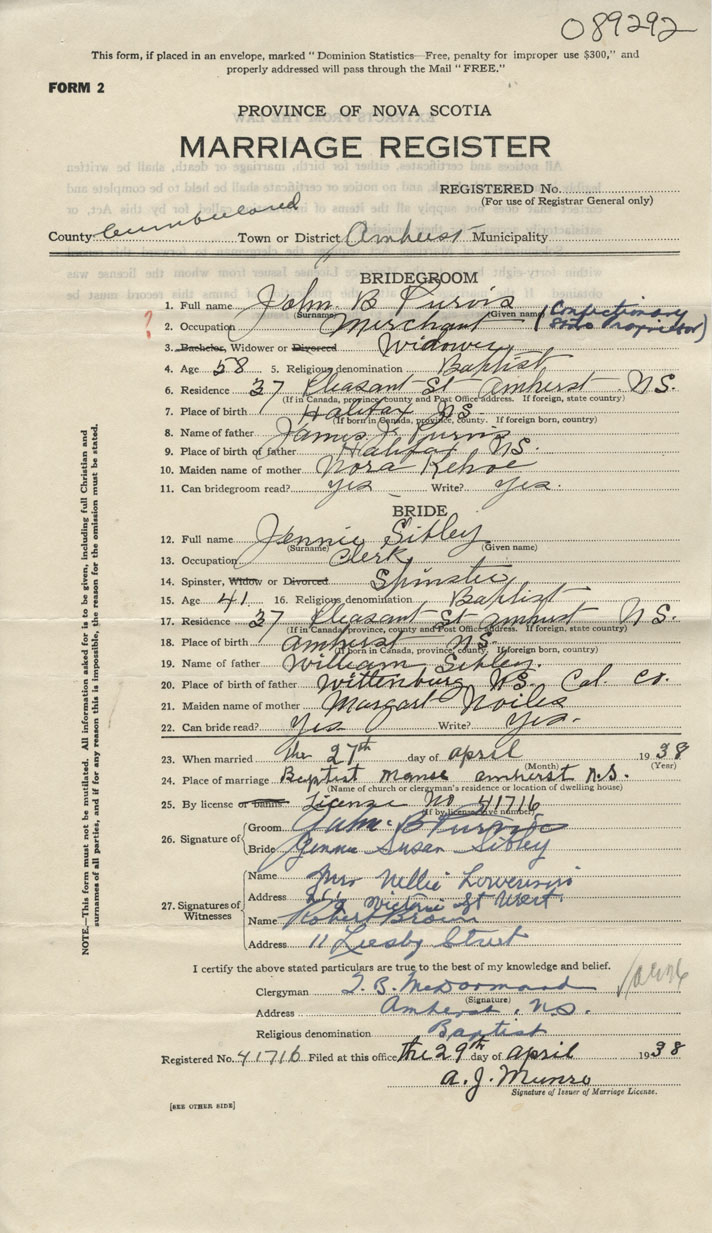 089292
This form, if placed in an envelope, marked "Dominion Statistics—Free, penalty for improper use $300," and
properly addressed will pass through the Mail "FREE."
FORM 2
PROVINCE OF NOVA SCOTIA
MARRIAGE REGISTER
REGISTERED No.
(For use of Registrar General only)
County Cumberland Town or District Amherst Municipality
BRIDEGROOM
1. Full name John B Purvis
(Surname) (Given name)
? 2. Occupation Merchant (Confectionary Store Proprietor)
3. Bachelor, Widower or Divorced Widower
4. Age 58 5. Religious denomination Baptist
6. Residence 37 Pleasant St Amherst N.S.
(If in Canada, province, county and Post Office address. If foreign, state country)
7. Place of birth Halifax N.S.
(If born in Canada, province, county. If foreign born, country)
8. Name of father James J. Purvis
9. Place of birth of father Halifax N.S.
10. Maiden name of mother Nora Kehoe
11. Can bridegroom read? Yes Write? Yes.
BRIDE
12. Full name Jennie Sibley
(Surname) (Given name)
13. Occupation Clerk
14. Spinster, Widow or Divorced Spinster
15. Age 41 16. Religious denomination Baptist
17. Residence 37 Pleasant St Amherst N.S.
(If in Canada, province, county and Post Office address. If foreign, state country)
18. Place of birth Amherst N.S.
(If born in Canada, province, county. If foreign born, country)
19. Name of father William Sibley.
20. Place of birth of father Wittenburg N.S. Col. Co.
21. Maiden name of mother Margart Noiles
22. Can bride read? Yes Write? Yes.
23. When married the 27th day of april 1938
(Month) (Year)
24. Place of marriage Baptist Manse amherst N.S.
(Name of church or clergyman's residence or location of dwelling house)
25. By license or banns License No 41716
(If by license give number)
26. Signature of Groom John B Purvis
Bride Jennie Susan Sibley
27. Signatures of Witnesses
Name Mrs Nellie
Address Victoria St West.
Name Robert Brown
Address 11 Street
I certify the above stated particulars are true to the best of my knowledge and belief.
Clergyman T. B. McDormand
(Signature)
Address Amherst, N.S.
Religious denomination Baptist
Registered No. 41716 Filed at this office the 29th day of april 1938
A. J. Munro
Signature of Issuer of Marriage License.
[SEE OTHER SIDE]
NOTE.—This form must not be mutilated. All information asked for is to be given, including full Christian and
surnames of all parties, and if for any reason this is impossible, the reason for the omission must be stated.